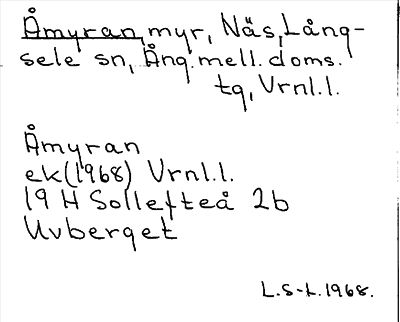 Åmyran, myr, Näs, Lång-
sele sn, Ång. mell. doms.
tg, Vrnl.l.
Åmyran
ek(1968) Vrnl.l.
19 H Sollefteå 2b
Uvberget
L.S-L.1968.